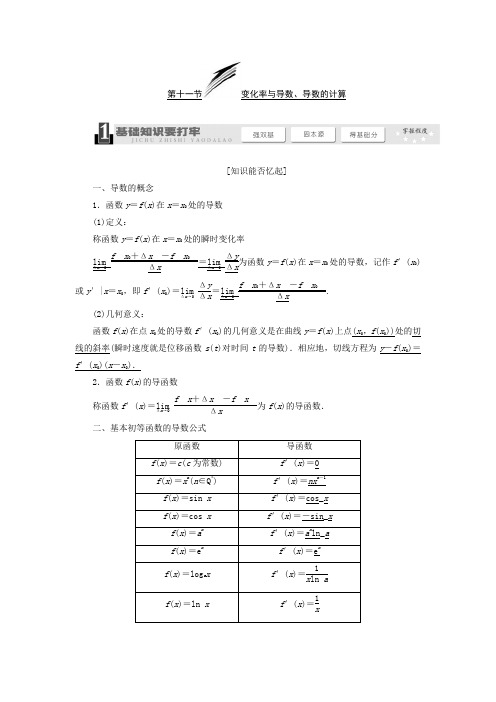 第十一节 变化率与导数、导数的计算
1 基础知识要打牢 强双基 固本源 得基础分 掌握程度
JICHU ZHISHI YAODALAO
[知识能否忆起]
一、导数的概念
1.函数y=f(x)在x=x₀处的导数
(1)定义:
称函数y=f(x)在x=x₀处的瞬时变化率
lim(Δx→0) f x₀+Δx -f x₀ / Δx =lim(Δx→0) Δy/Δx 为函数y=f(x)在x=x₀处的导数,记作f′(x₀)
或y′|x=x₀,即f′(x₀)=lim(Δx→0) Δy/Δx=lim(Δx→0) f x₀+Δx -f x₀ / Δx.
(2)几何意义:
函数f(x)在点x₀处的导数f′(x₀)的几何意义是在曲线y=f(x)上点(x₀,f(x₀))处的切
线的斜率(瞬时速度就是位移函数s(t)对时间t的导数).相应地,切线方程为y-f(x₀)=
f′(x₀)(x-x₀).
2.函数f(x)的导函数
称函数f′(x)=lim(Δx→0) f x+Δx -f x / Δx 为f(x)的导函数.
二、基本初等函数的导数公式
原函数 导函数
f(x)=c(c为常数) f′(x)=0
f(x)=xⁿ(n∈Q*) f′(x)=nxⁿ⁻¹
f(x)=sin x f′(x)=cos_x
f(x)=cos x f′(x)=-sin_x
f(x)=aˣ f′(x)=aˣln_a
f(x)=eˣ f′(x)=eˣ
f(x)=logₐx f′(x)=1/(xln a)
f(x)=ln x f′(x)=1/x